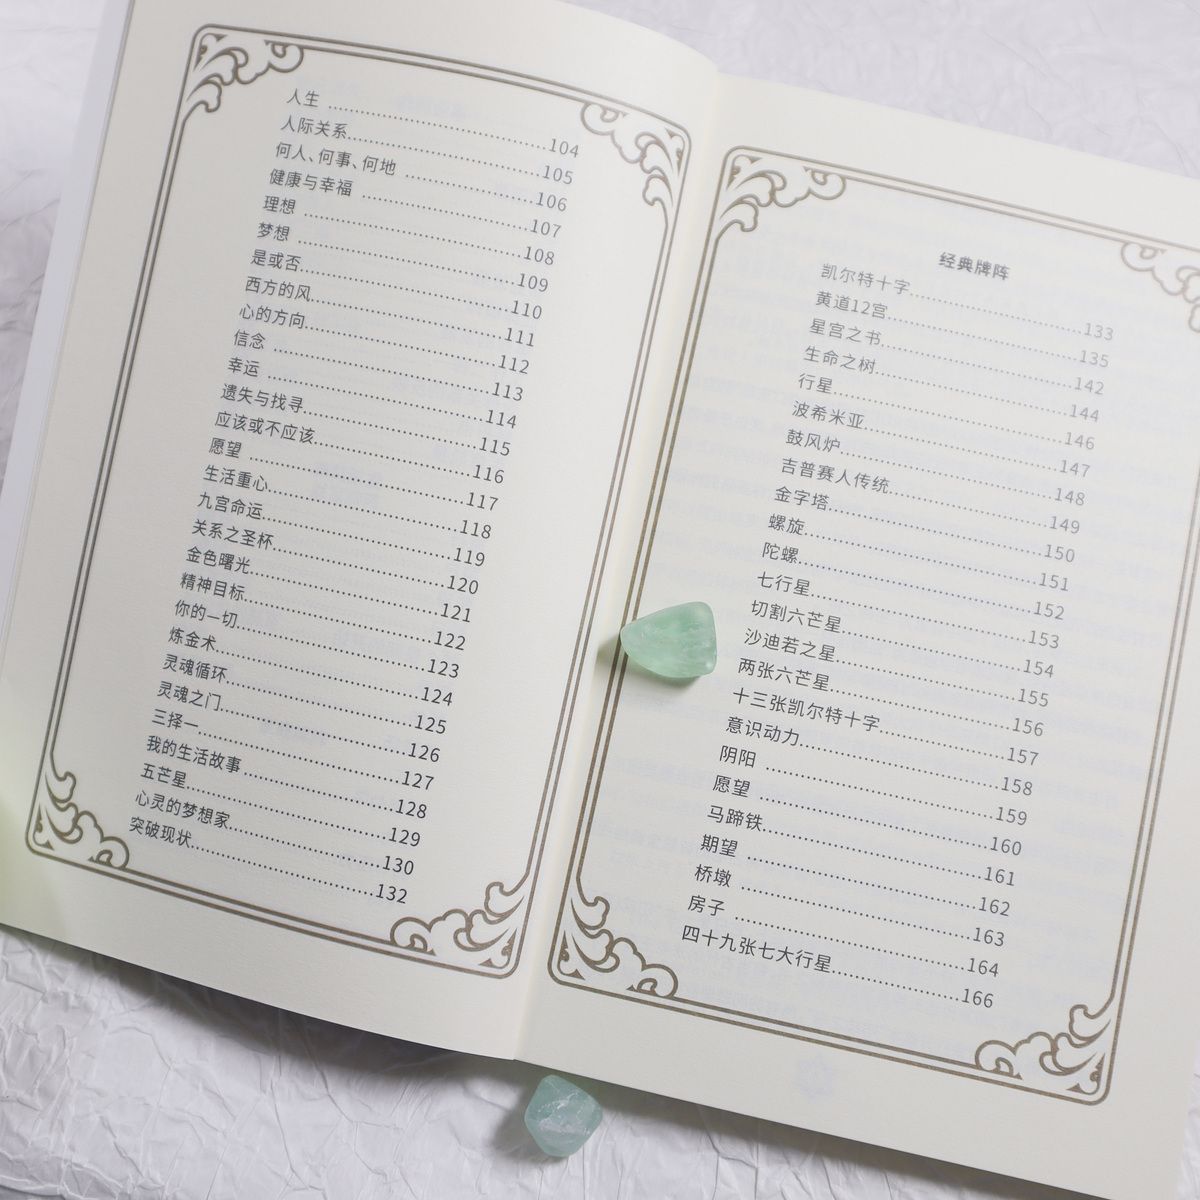 人生 ........................104
人际关系........................105
何人、何事、何地 ........................106
健康与幸福 ........................107
理想 ........................108
梦想 ........................109
是或否........................110
西方的风........................111
心的方向........................112
信念 ........................113
幸运 ........................114
遗失与找寻........................115
应该或不应该........................116
愿望 ........................117
生活重心........................118
九宫命运........................119
关系之圣杯........................120
金色曙光........................121
精神目标........................122
你的一切........................123
炼金术........................124
灵魂循环........................125
灵魂之门........................126
三择一........................127
我的生活故事........................128
五芒星........................129
心灵的梦想家........................130
突破现状........................132
经典牌阵
凯尔特十字........................133
黄道12宫........................135
星宫之书........................142
生命之树........................144
行星........................146
波希米亚........................147
鼓风炉........................148
吉普赛人传统........................149
金字塔........................150
螺旋........................151
陀螺........................152
七行星........................153
切割六芒星........................154
沙迪若之星........................155
两张六芒星........................156
十三张凯尔特十字........................157
意识动力........................158
阴阳 ........................159
愿望 ........................160
马蹄铁........................161
期望 ........................162
桥墩 ........................163
房子 ........................164
四十九张七大行星........................166